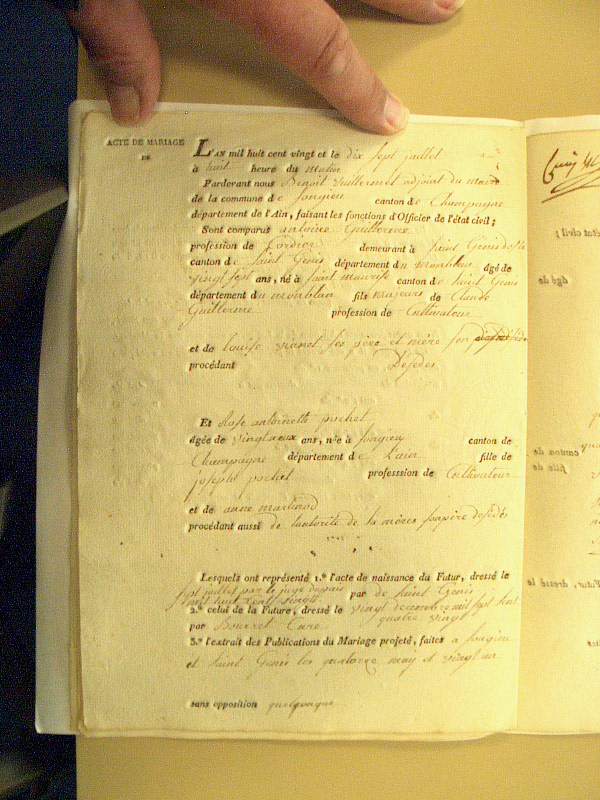 ACTE DE MARIAGE
DE
L'AN mil huit cent vingt et le dix sept juillet
à huit heure du matin
Pardevant nous Benoit Guillermet adjoint du maire
de la commune de Songieu canton de Champagne
département de l'Ain, faisant les fonctions d'Officier de l'état civil;
Sont comparus antoine Guillerme
profession de demeurant à Saint Genis
canton de Saint Genis département du montblan âgé de
vingt sept ans, né à Saint maurise canton de Saint Genis
département du montblan fils majeurs de Claude
Guillerme profession de Cultivateur
et de Louise les père et mère son
procédant Désedes
Et Rose antoinette pochet
âgée de ans, née à Songieu canton de
Champagne département de Lain fille de
joseph pochet professsion de Cultivateur
et de anne martinod
procédant aussi de lautorité de la mères sonpère désédés
Lesquels ont représenté 1.º l'acte de naissance du Futur, dressé le
sept juillet par le juge depais
mil huit cent vingt par de Saint Genis
2.º celui de la Future, dressé le vingt decembre mil sept cent
quatre vingt
par Bourret Cure
3.º l'extrait des Publications du Mariage projeté, faites a Songieu
et Saint Genis les quatorze may et vingt un
sans opposition quelquonque